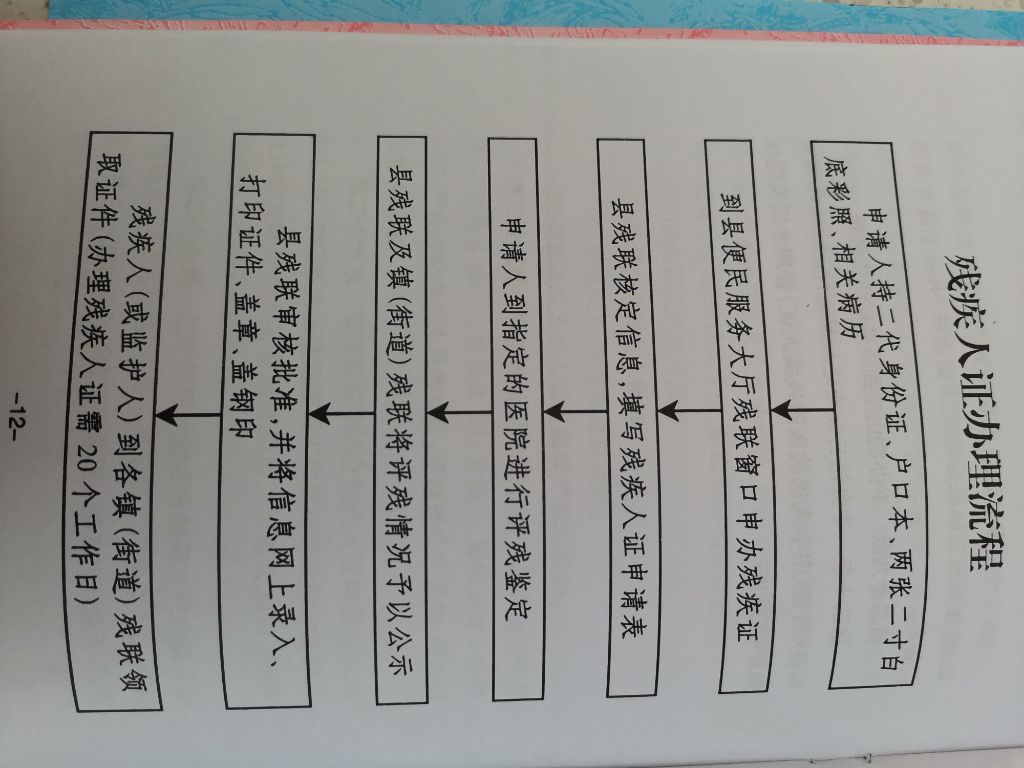 残疾人证办理流程
申请人持二代身份证、户口本、两张二寸白
底彩照、相关病历
到县便民服务大厅残联窗口申办残疾证
县残联核定信息,填写残疾人证申请表
申请人到指定的医院进行评残鉴定
县残联及镇(街道)残联将评残情况予以公示
县残联审核批准,并将信息网上录入、
打印证件、盖章、盖钢印
残疾人(或监护人)到各镇(街道)残联领
取证件(办理残疾人证需20个工作日)
-12-